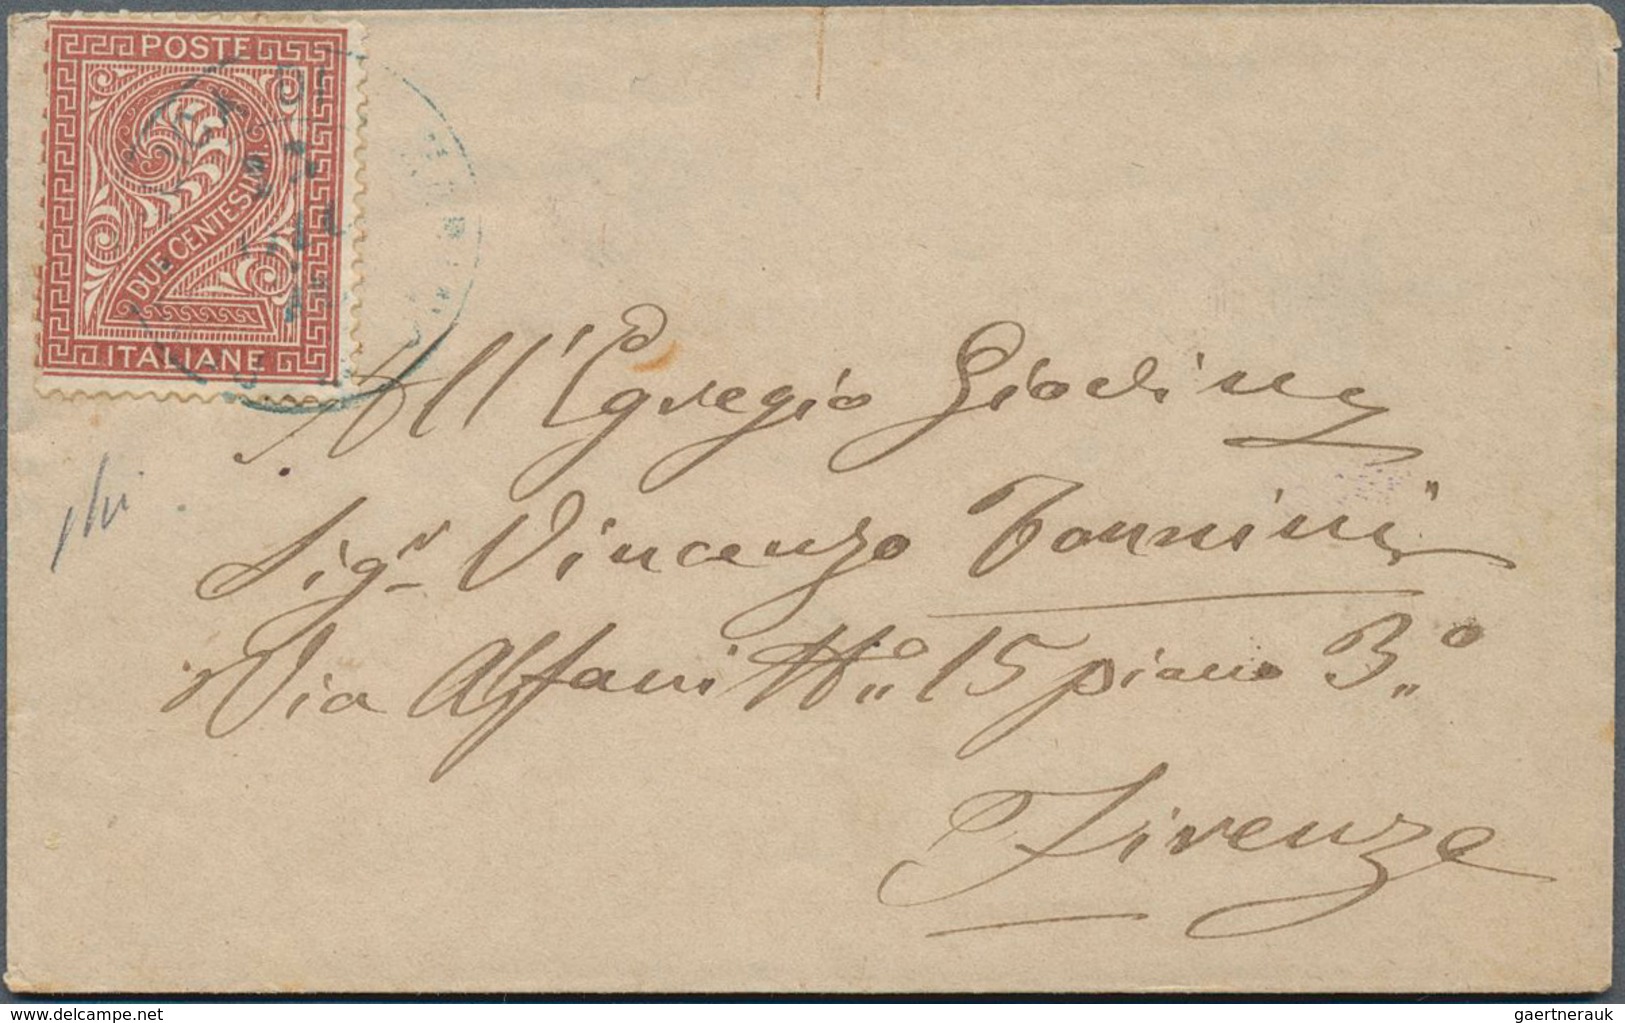 POSTE
DUE CENTESIMI
ITALIANE
All'Egregio Giovine
Sigr Vincenzo Fannini
Via Alfani No 15 piano 3o
Firenze
delcampe.net
gaertnerauk